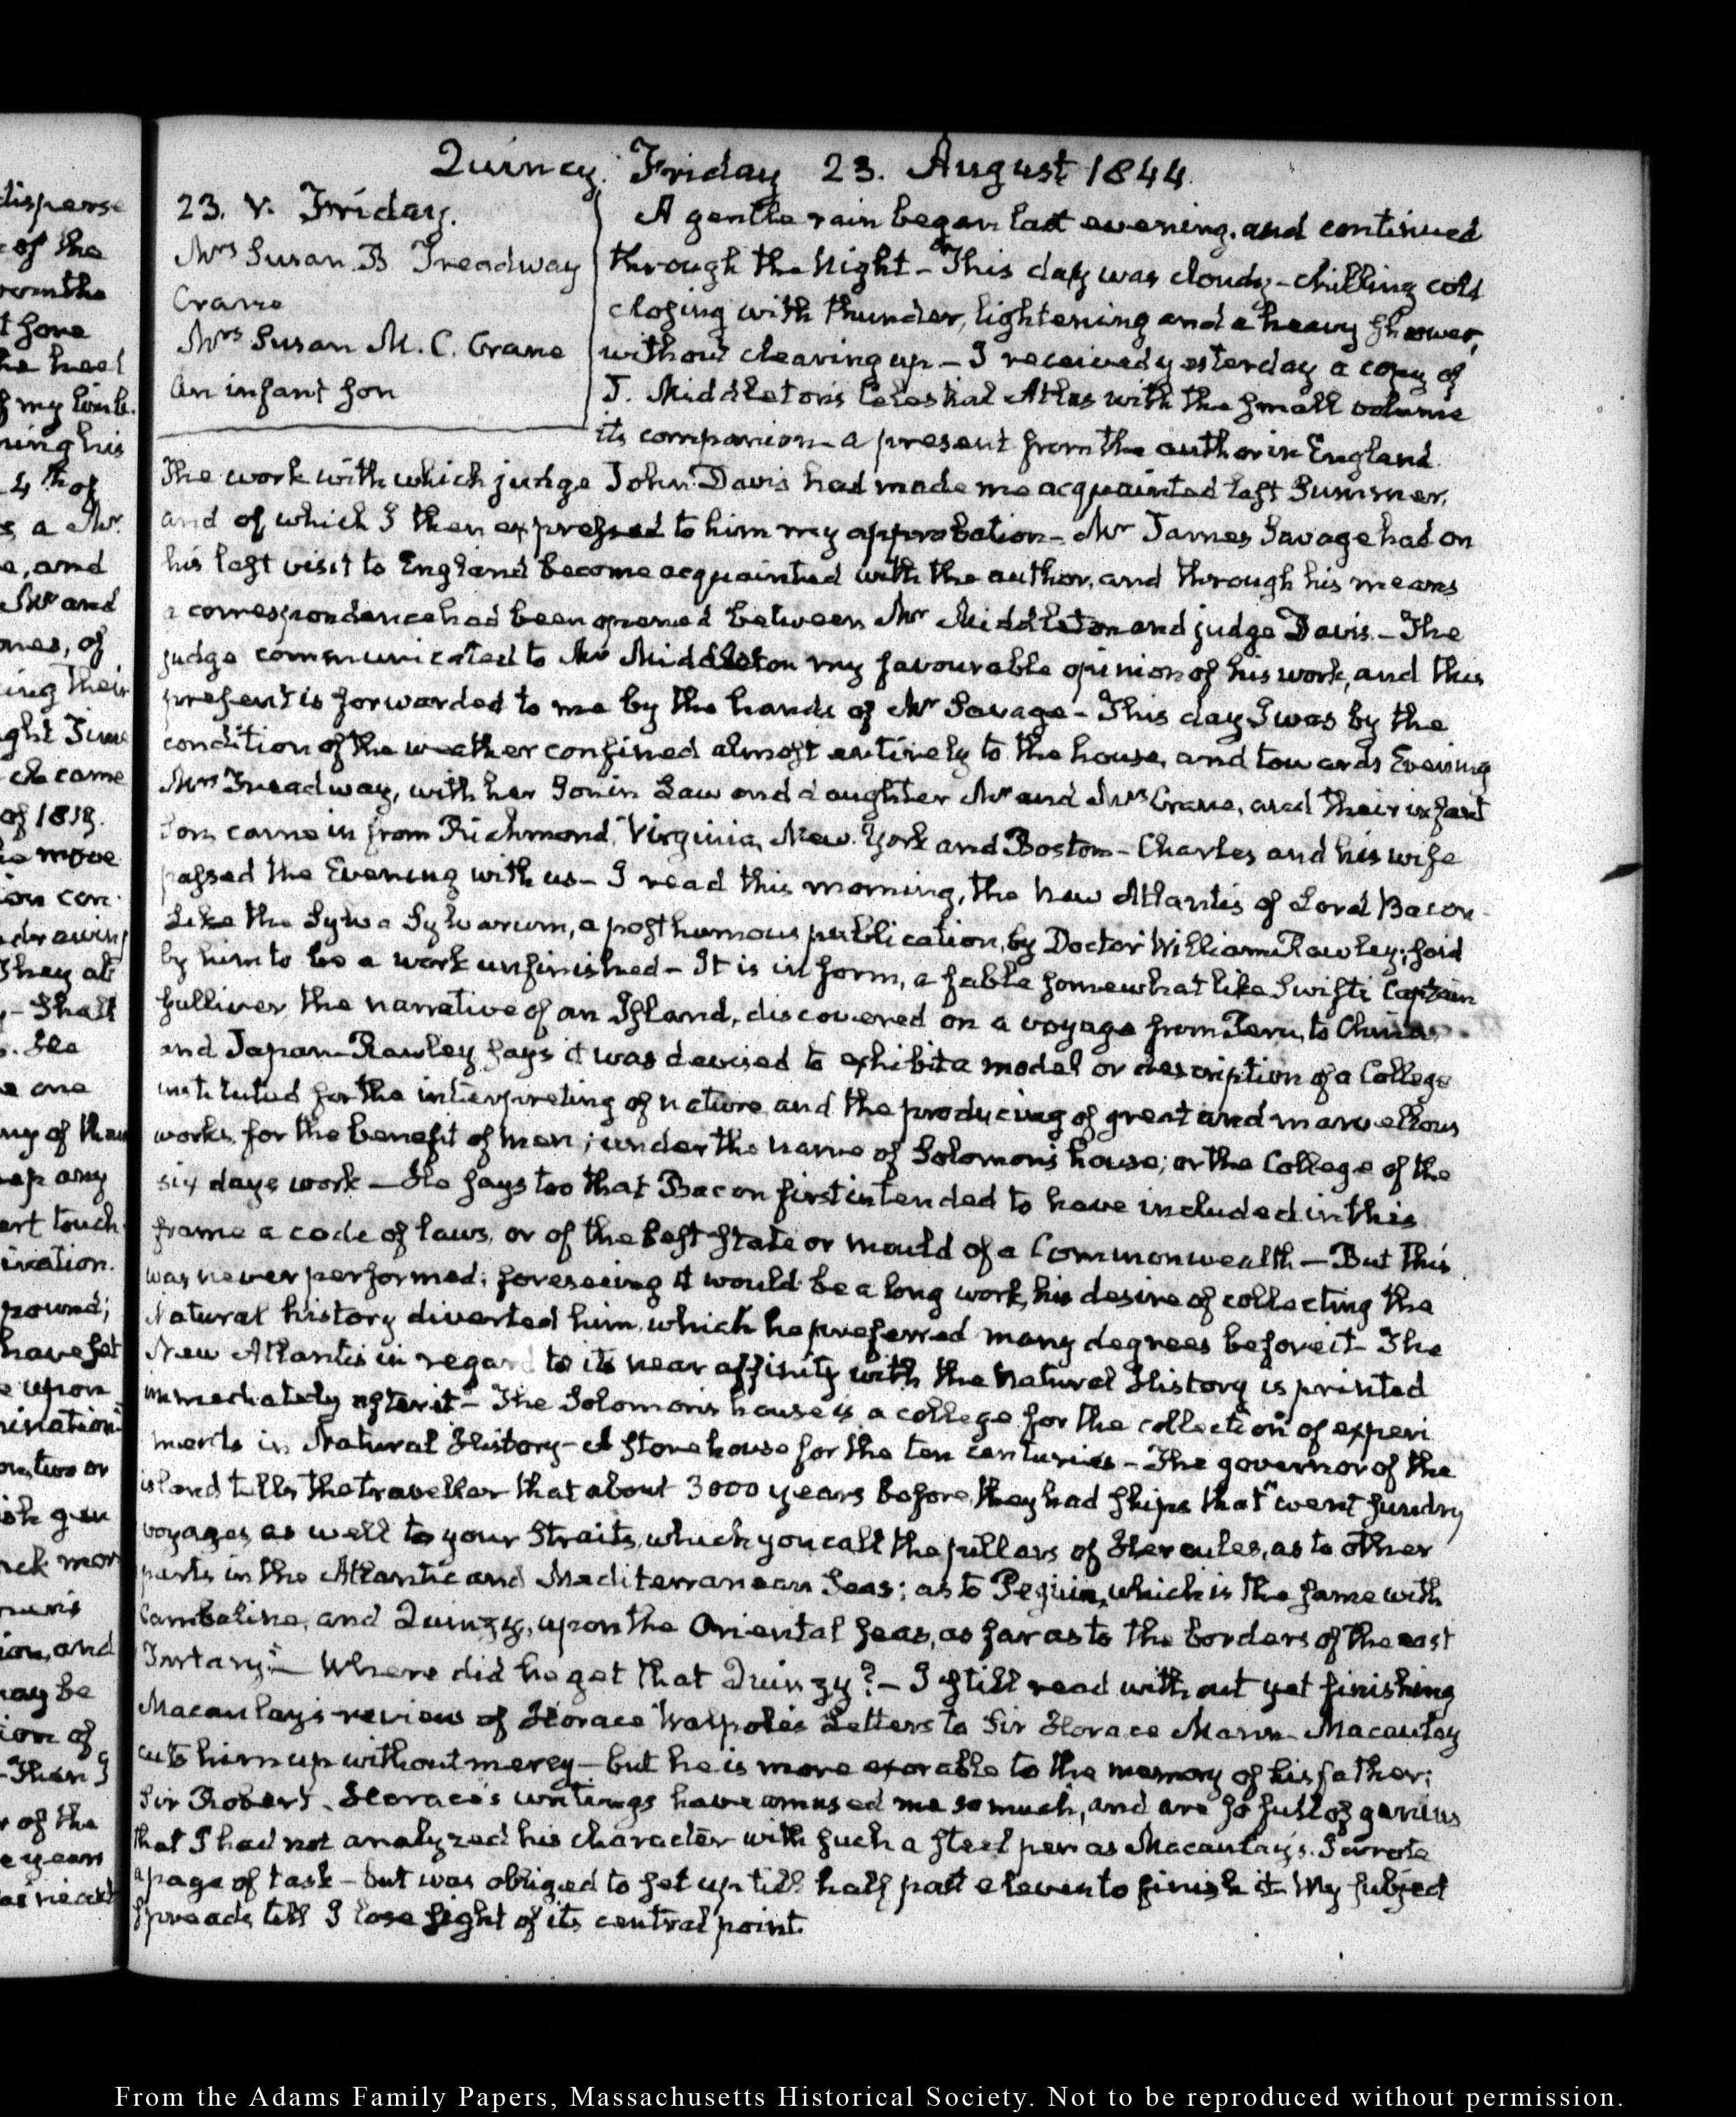 Quincy. Friday 23. August 1844.
23. V. Friday.
Mrs Susan. B Treadway
Crane
Mrs Susan M. C. Crane
An infant son
A gentle rain began last evening, and continued
through the Night - This day was cloudy - chilling cold
closing with thunder, lightening and a heavy shower,
without clearing up - I received yesterday a copy of
J. Middleton's Celestial Atlas with the small volume
its companion - a present from the author in England.
The work with which judge John Davis had made me acquainted last Summer,
and of which I then expressed to him my approbation - Mr James Savage had on
his last visit to England become acquainted with the author, and through his means
a correspondence had been opened between Mr Middleton and judge Davis. - The
judge communicated to Mr Middleton my favourable opinion of his work, and this
present is forwarded to me by the hands of Mr Savage - This day I was by the
condition of the weather confined almost entirely to the house, and towards Evening
Mrs Treadway, with her Son in Law and daughter Mr and Mrs Crane, and their infant
son, came in from Richmond, Virginia, New-York and Boston - Charles and his wife
passed the Evening with us - I read this morning, the New Atlantis of Lord Bacon
Like the Sylva Sylvarum, a posthumous publication, by Doctor William Rawley; said
by him to be a work unfinished - It is in form, a fable somewhat like Swift's Captain
Gulliver, the narrative of an Island, discovered on a voyage from Peru, to China
and Japan - Rawley says it was devised to exhibit a model or description of a College
instituted for the interpreting of nature and the producing of great and marvellous
works, for the benefit of men; under the name of Solomon's house; or the College of the
six days work - He says too that Bacon first intended to have included in this
frame a code of laws, or of the best state or mould of a Commonwealth - But this
was never performed; foreseeing it would be a long work, his desire of collecting the
Natural history diverted him, which he preferred many degrees before it - The
New Atlantis in regard to its near affinity with the Natural History is printed
immediately after it" - The Solomon's house is a college for the collection of experi
ments in Natural History - A Storehouse for the ten centuries - The governor of the
island tells the traveller that about 3000 years before, they had ships that "went sundry
voyages, as well to your Straits, which you call the pillars of Hercules, as to other
parts in the Atlantic and Mediterranean Seas; as to Peguin, which is the same with
Cambaline, and Quinzy, upon the Oriental seas, as far as to the borders of the east
Tartary." - Where did he get that Quinzy? - I still read without yet finishing
Macaulay's review of Horace Walpole's Letters to Sir Horace Mann - Macaulay
cuts him up without mercy - but he is more exorable to the memory of his father;
Sir Robert. Horace's writings have amused me so much, and are so full of genius
that I had not analyzed his character with such a steel pen as Macaulay's. I wrote
a page of task - but was obliged to set up till half past eleven to finish it - My subject
spreads till I lose sight of its central point.